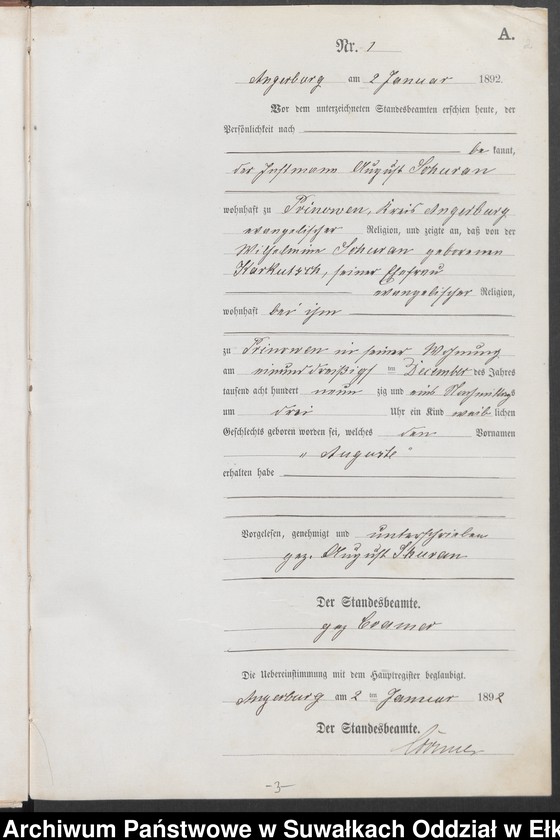 A.
2
Nr. 1
Angerburg am 2 Januar 1892.
Vor dem unterzeichneten Standesbeamten erschien heute, der
Persönlichkeit nach
be kannt,
der Instmann August Schuran
wohnhaft zu Prinowen, Kreis Angerburg
evangelischer Religion, und zeigte an, daß von der
Wilhelmine Schuran geborenen
Karkutsch, seiner Ehefrau
evangelischer Religion,
wohnhaft bei ihm
zu Prinowen in seiner Wohnung
am einunddreißigst ten December des Jahres
tausend acht hundert neun zig und eins Nachmittags
um drei Uhr ein Kind weib lichen
Geschlechts geboren worden sei, welches den Vornamen
„ Auguste "
erhalten habe
Vorgelesen, genehmigt und unterschrieben
gez. August Skuran
Der Standesbeamte.
gez Cramer
Die Uebereinstimmung mit dem Hauptregister beglaubigt.
Angerburg am 2 ten Januar 1892
Der Standesbeamte.
Cramer
-3-
Archiwum Państwowe w Suwałkach Oddział w Ełk